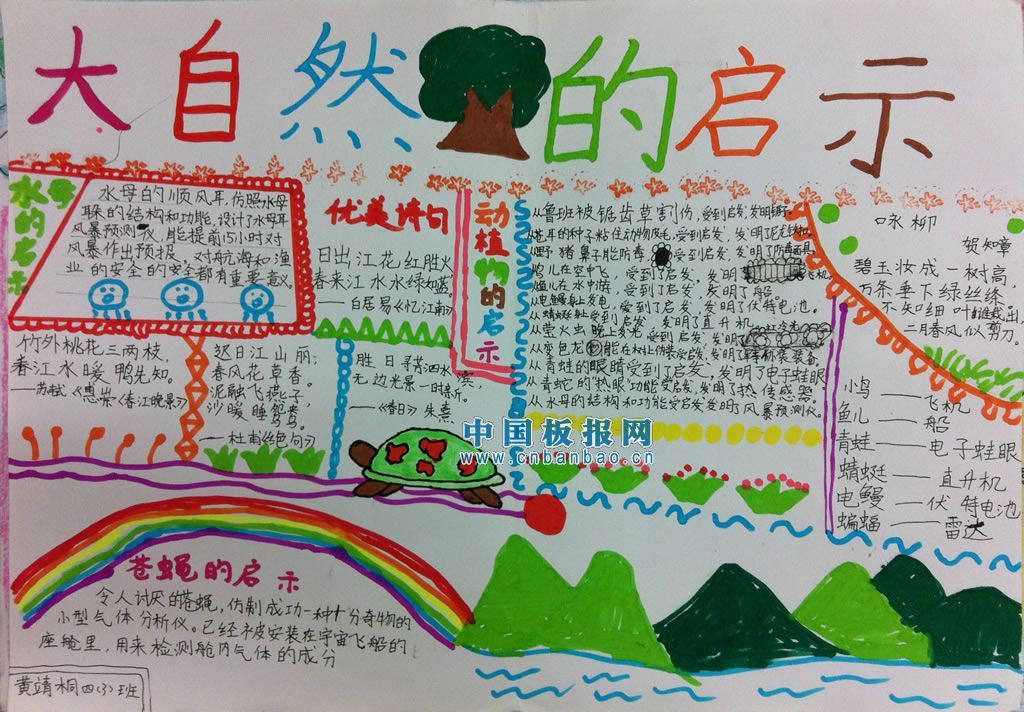 大自然的启示
水母的启示
水母的顺风耳,仿照水母
耳朵的结构和功能,设计了水母耳
风暴预测仪,能提前15小时对
风暴作出预报,对航海和渔
业的安全的安全都有重要意义。
优美诗句
日出江花红胜火
春来江水水绿如蓝。
——白居易《忆江南》
竹外桃花三两枝,
春江水暖鸭先知。
——苏轼《惠崇《春江晚景》
迟日江山丽,
春风花草香。
泥融飞燕子,
沙暖睡鸳鸯。
——杜甫《绝句》
胜日寻芳泗水滨,
无边光景一时新。
——《春日》朱熹
动植物的启示
从鲁班被锯齿草割伤,受到启发,发明锯子。
从苍耳的种子粘住动物皮毛,受到启发,发明了尼龙
从野猪鼻子能防毒,受到启发,发明了防毒面具
鸟儿在空中飞,受到了启发,发明了飞机。
鱼儿在水中游,受到了启发,发明了船。
从电鳗身上发电,受到了启发,发明了伏特电池。
从蜻蜓身上受到启发,发明了直升机
从萤火虫晚上发光受到启发,发明了冷光
从变色龙能在树上伪装受启发,发明了装备。
从青蛙的眼睛受到了启发,发明了电子蛙眼
从青蛇的热眼功能受启发,发明了热传感器。
从水母的结构和功能受启发发明了风暴预测仪。
咏柳
贺知章
碧玉妆成一树高,
万条垂下绿丝绦。
不知细叶谁裁出,
二月春风似剪刀。
小鸟——飞机
鱼儿——船
青蛙——电子蛙眼
蜻蜓——直升机
电鳗——伏特电池
蝙蝠——雷达
中国板报网
www.cnbanbao.cn
苍蝇的启示
令人讨厌的苍蝇,仿制成功一种十分奇物的
小型气体分析仪。已经被安装在宇宙飞船的
座舱里,用来检测舱内气体的成分
黄靖桐四(3)班